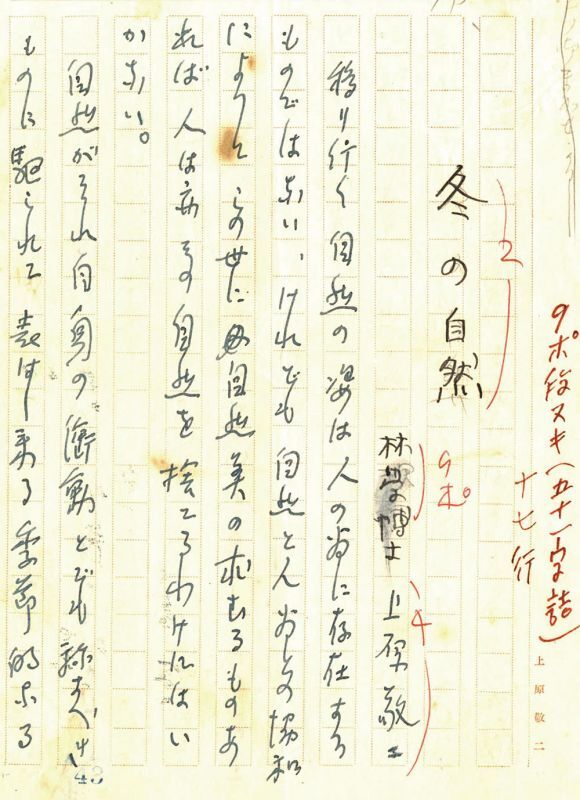 9ポ段ヌキ(五十一字詰)
十七行
上原敬二
2
冬の自然
9ポ
4
林学博士 上原敬二
移り行く自然の姿は人の為に存在する
ものではない、けれども自然と人為との協和
によつてこの世に自然美の求むるものあ
れば人は亦その自然を捨てるわけにはい
かない。
自然がそれ自身の衝動とでも称すべき
ものに駆られて表はし来る季節的なる
43